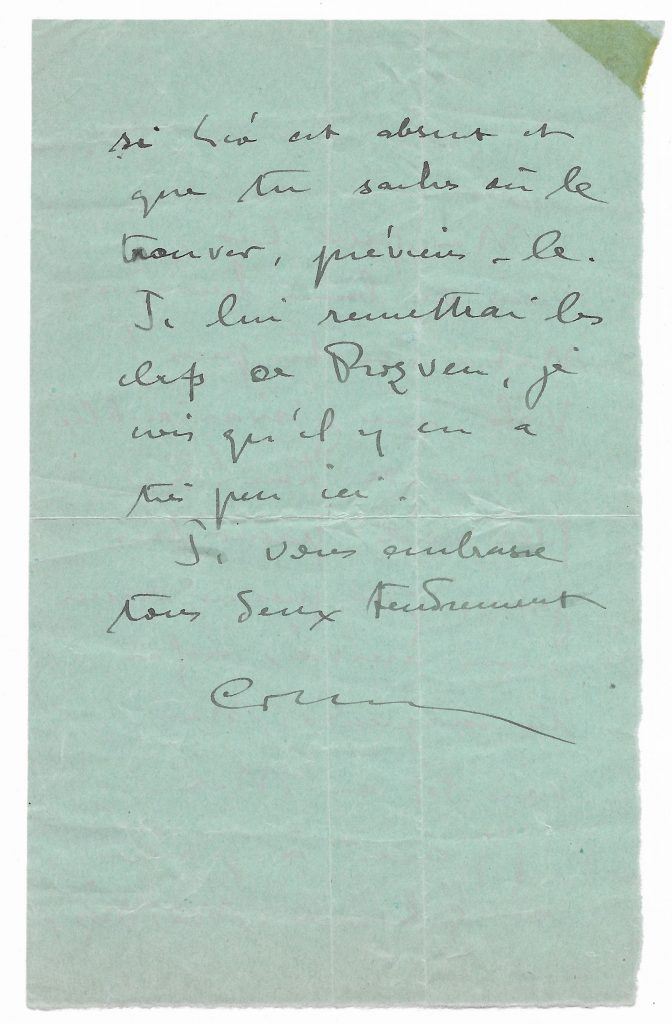 si Léo est absent et
que tu saches où le
trouver, préviens-le.
Je lui remettrai les
clefs de Rozven, je
crois qu'il y en a
très peu ici.
Je vous embrasse
tous deux tendrement